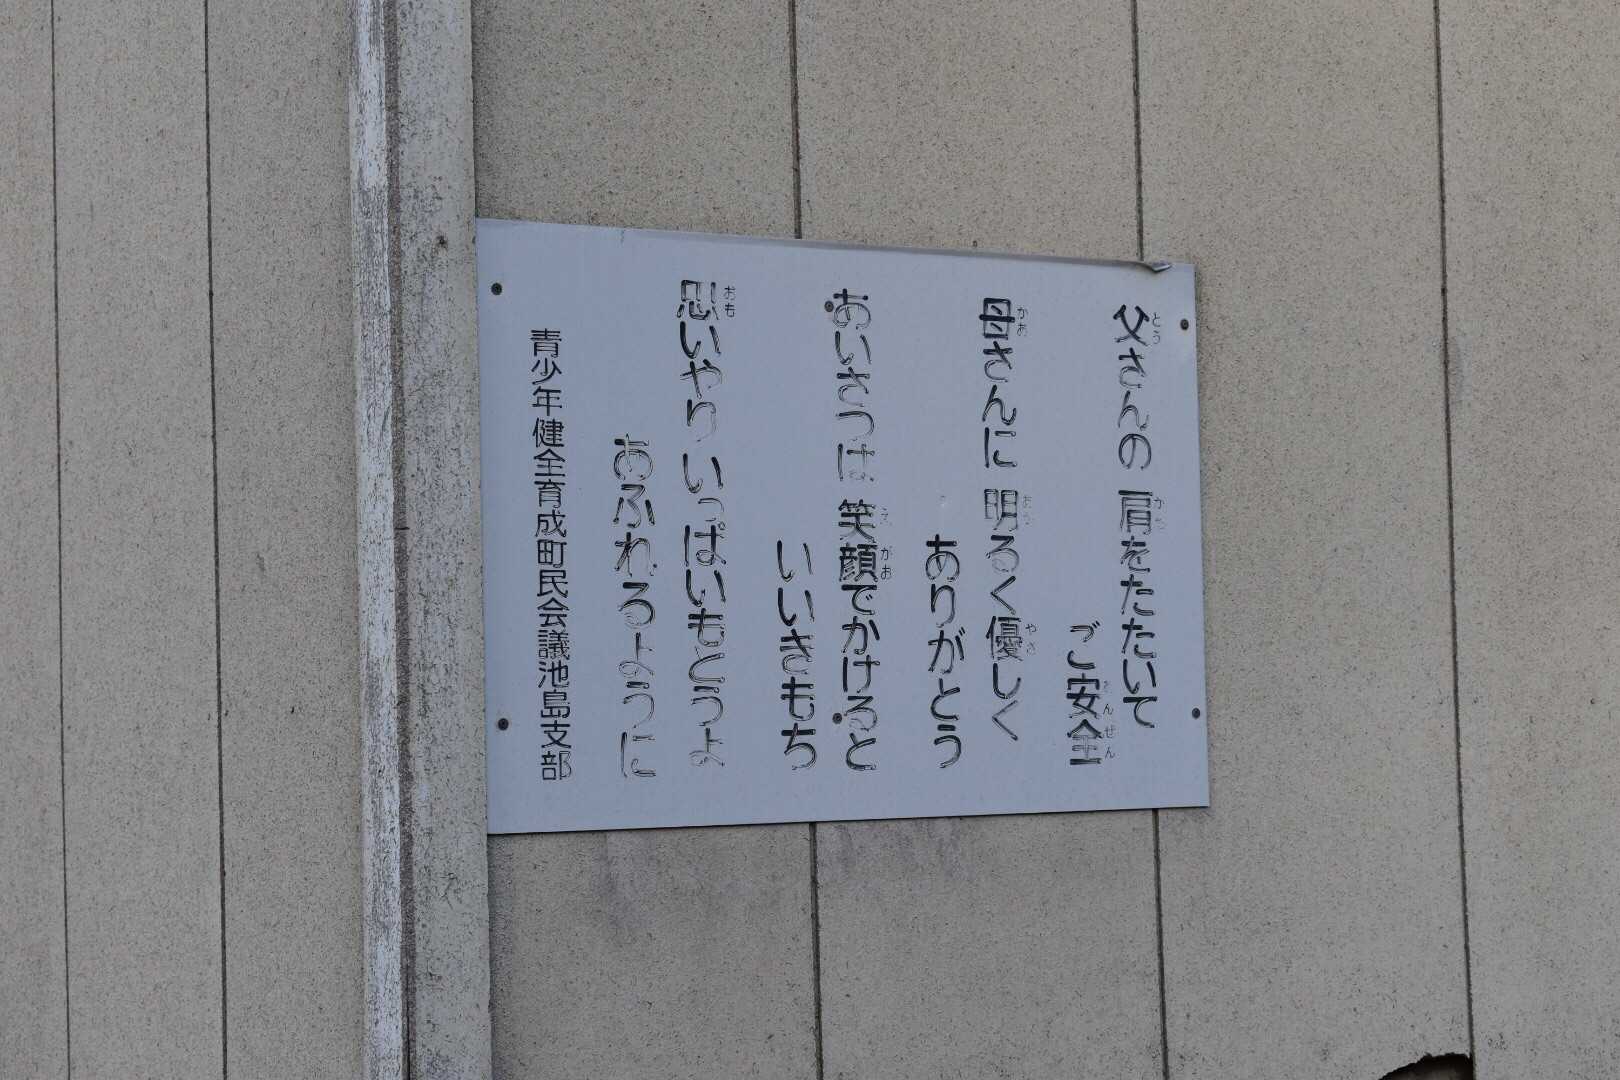 父さんの 肩をたたいて
ご安全
母さんに 明るく優しく
ありがとう
あいさつは 笑顔でかけると
いいきもち
思いやり いっぱいもとうよ
あふれるように
青少年健全育成町民会議池島支部